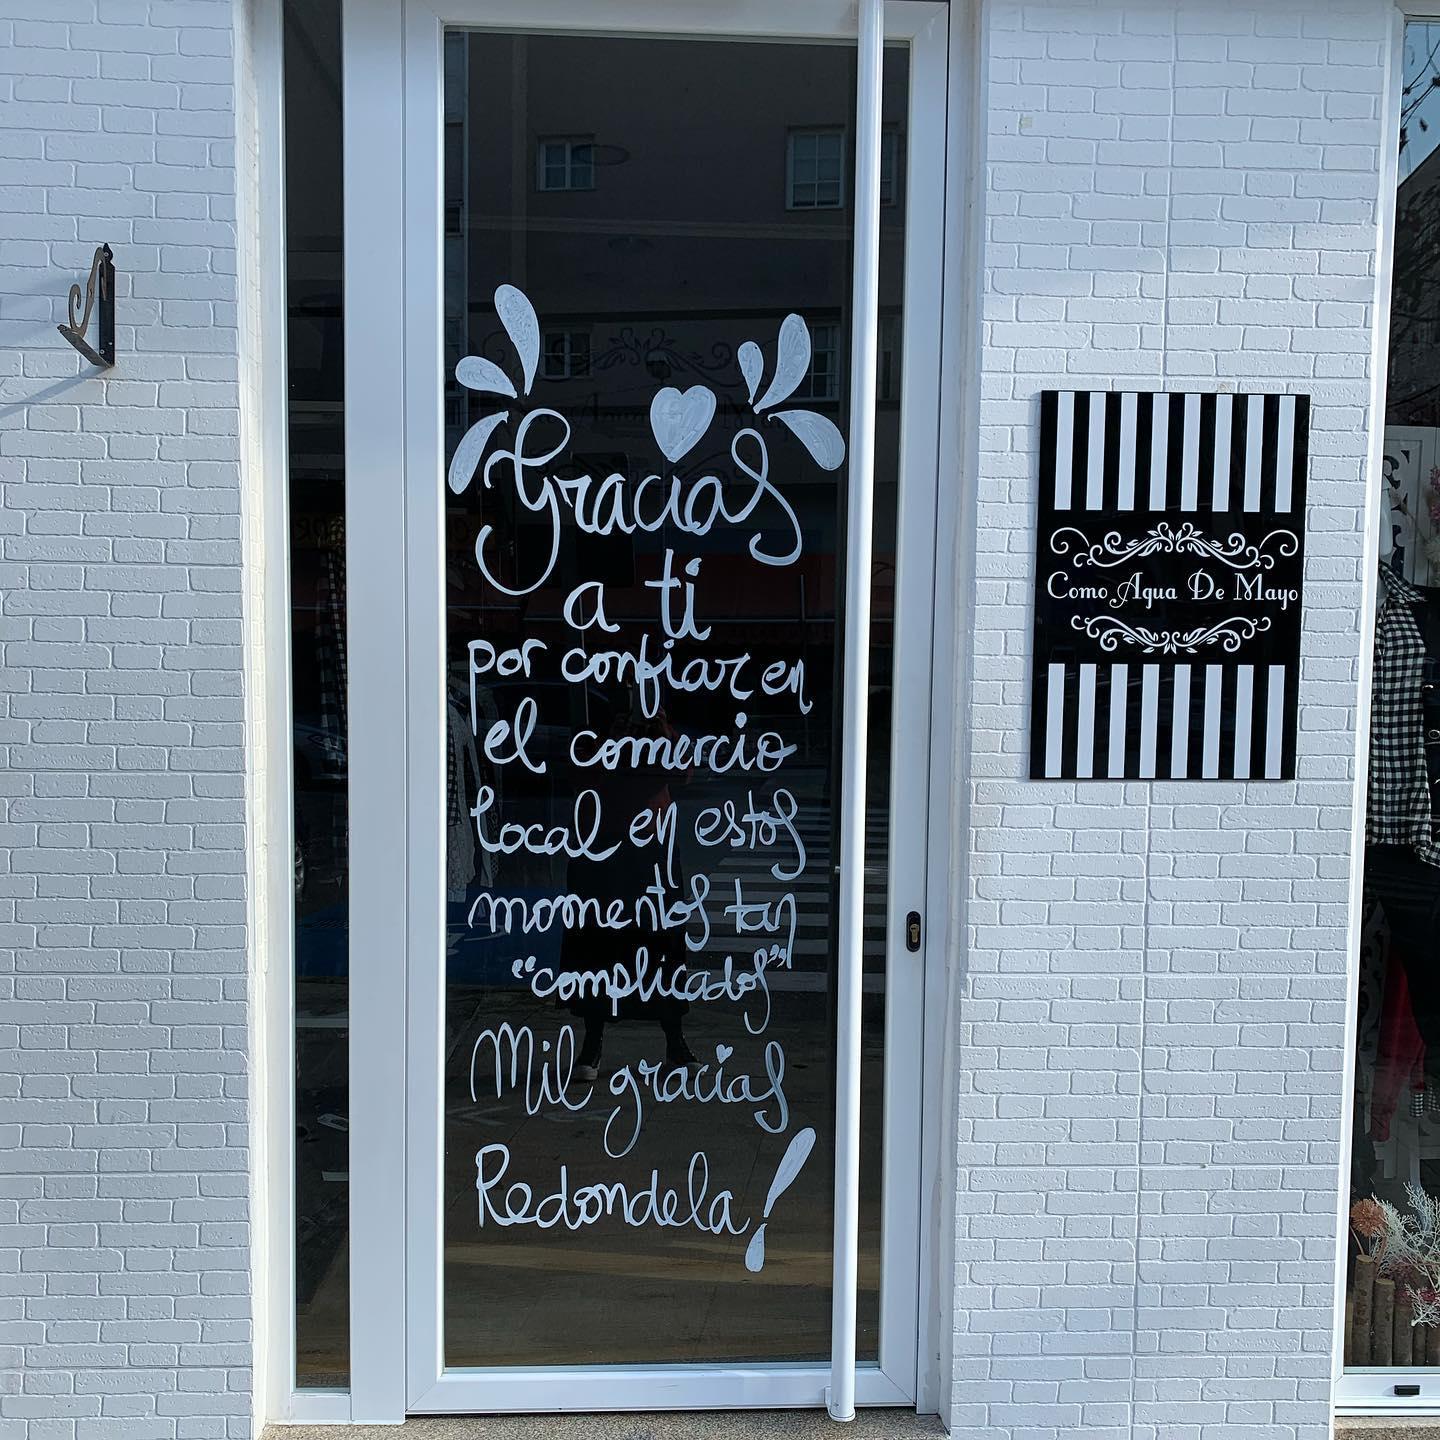 Gracias
a ti
por confiar en
el comercio
local en estos
momentos tan
"complicados"
Mil gracias
Redondela!
Como Agua De Mayo